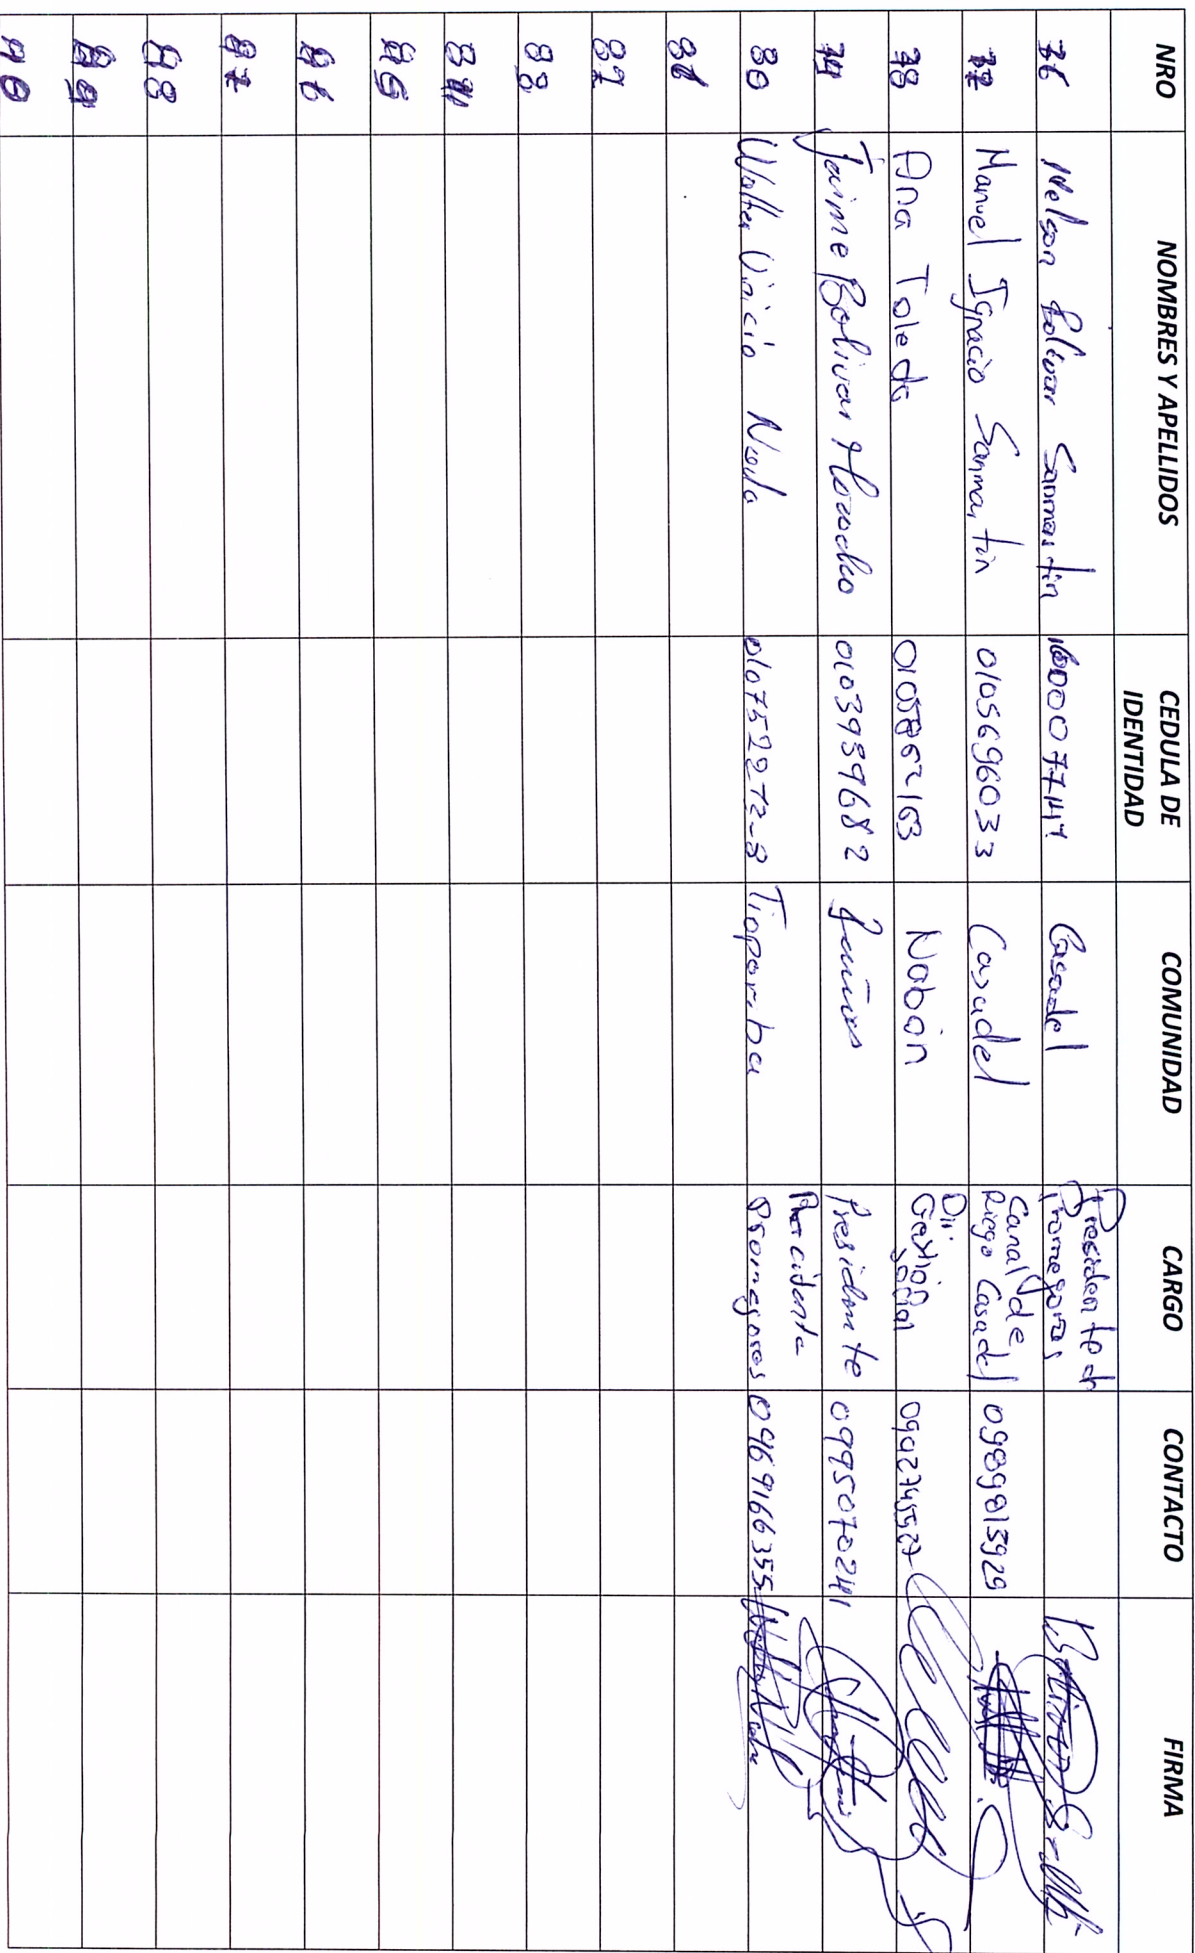 NRO NOMBRES Y APELLIDOS CEDULA DE IDENTIDAD COMUNIDAD CARGO CONTACTO FIRMA
76 Nelson Bolivar Sanmartin Casadel Presidente de Promejoras
77 Manuel Ignacio Sanmartin 0105696033 Casadel Canal de Riego Casadel 0989815929
78 Ana Toledo Nabón Dir. Gestión Social
79 Jaime Bolivar 0103959682 Presidente 0995070241
80 Walter Vinicio Naula 010752272-8 Tioporba Presidente Promejoras 0969166355
81
82
83
84
85
86
87
88
89
90